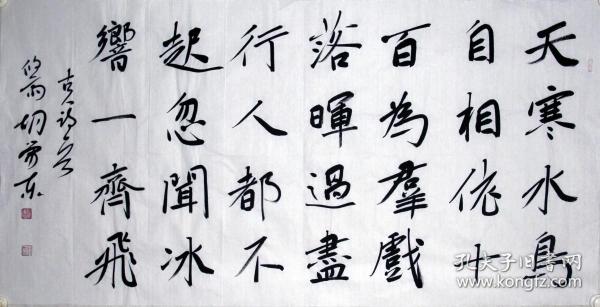 天寒水鳥
自相依十
百為羣戲
落暉過盡
行人都不
起忽聞冰
響一齊飛
孔夫子旧书网
www.kongfz.com